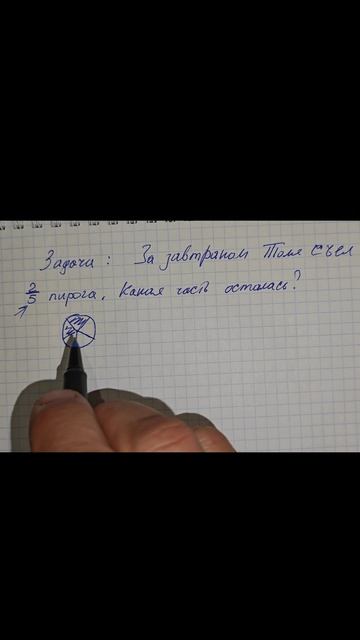 Задача : За завтраком Толя съел
2/5 пирога. Какая часть осталась?